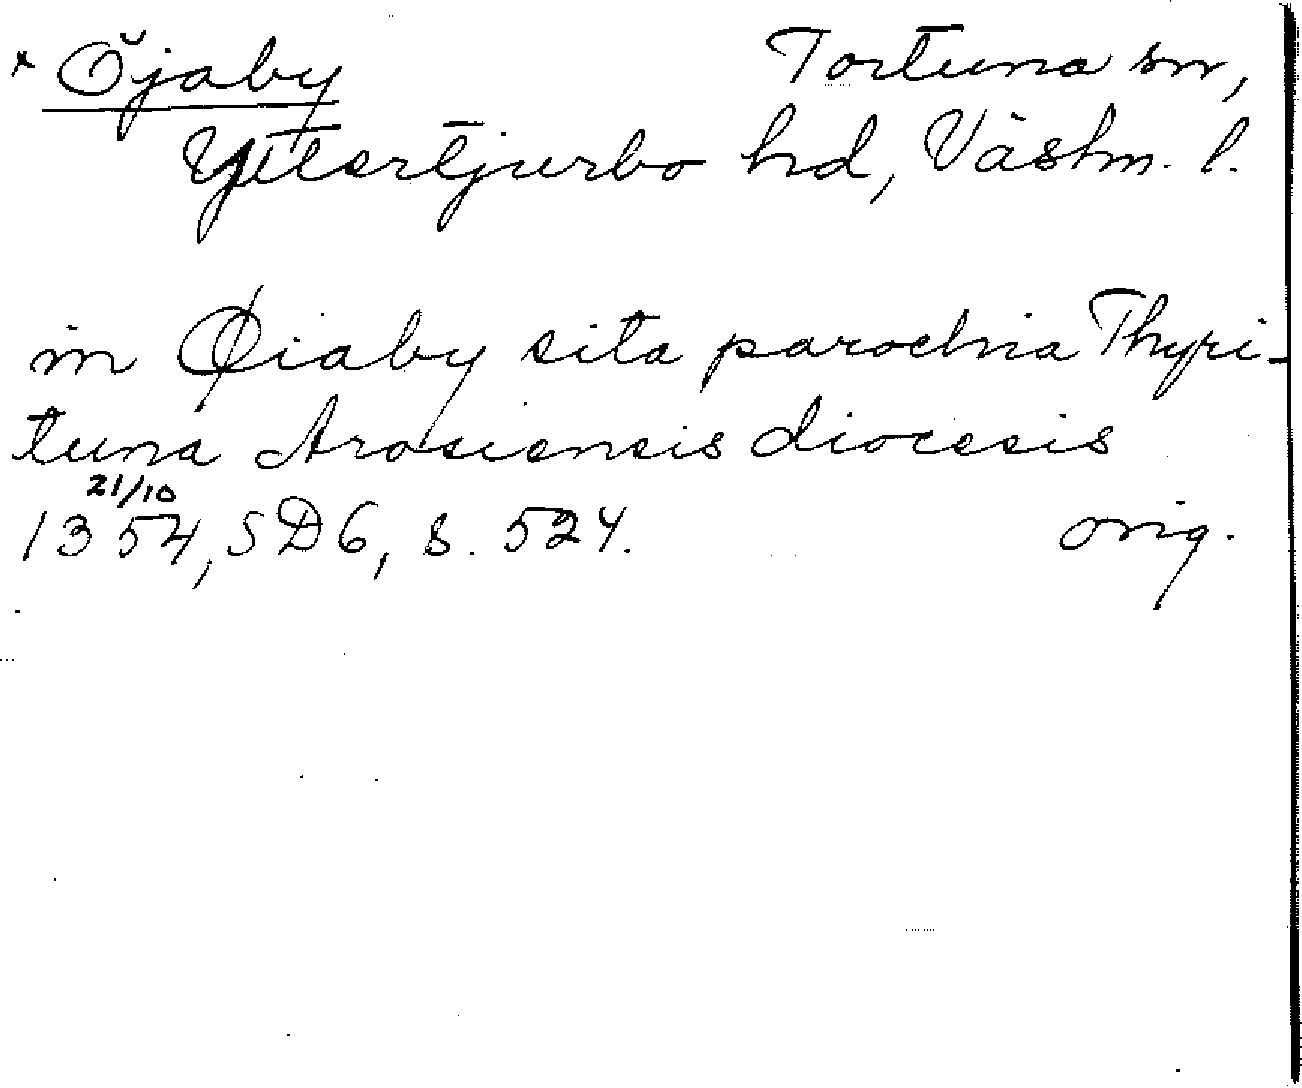 * Öjaby Tortuna sn,
Yttertjurbo hd, Västm. l.
in Øiaby sita parochia Thyri-
tuna Arosiensis diocesis
21/10
1354, SD6, s. 524. orig.